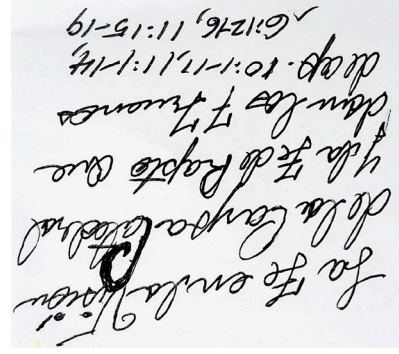 La Fe en la Visión
de la Carpa Catedral
y la Fe de Rapto que
dan los 7 Truenos
de ap. 10:1-11, 11:1-14,
6:12-16, 11:15-19